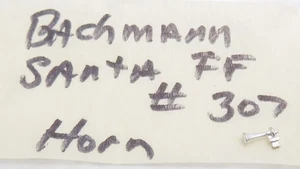 BAchmAnn
SAntA FF
# 307
Horn